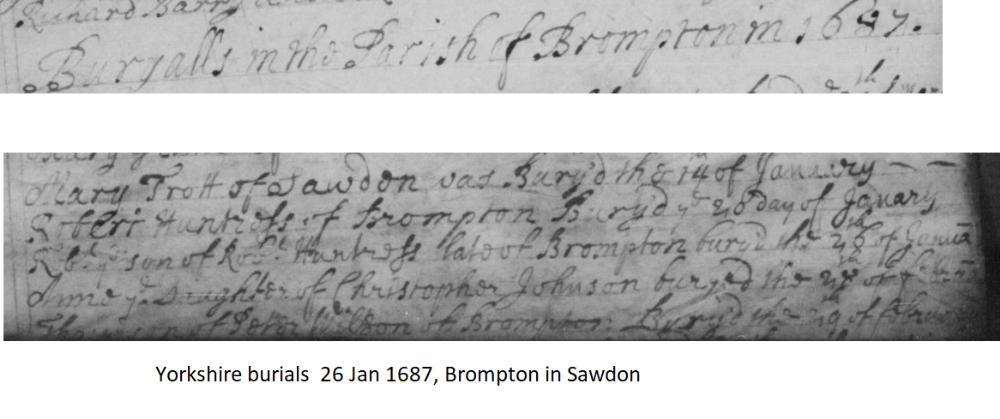 Richard Barry
Buryalls in the Parish of Brompton in 1687.
Mary Trott of Sawdon was Bury'd the 14 of January
Robert Huntress of Brompton Bury'd ye 26 day of January
Robt ye son of Robt Huntress late of Brompton buryd the 28th of Janua
Anne ye Daughter of Christopher Johnson buryed the of
son of Peter Wilson of Brompton Bury'd the of
Yorkshire burials 26 Jan 1687, Brompton in Sawdon